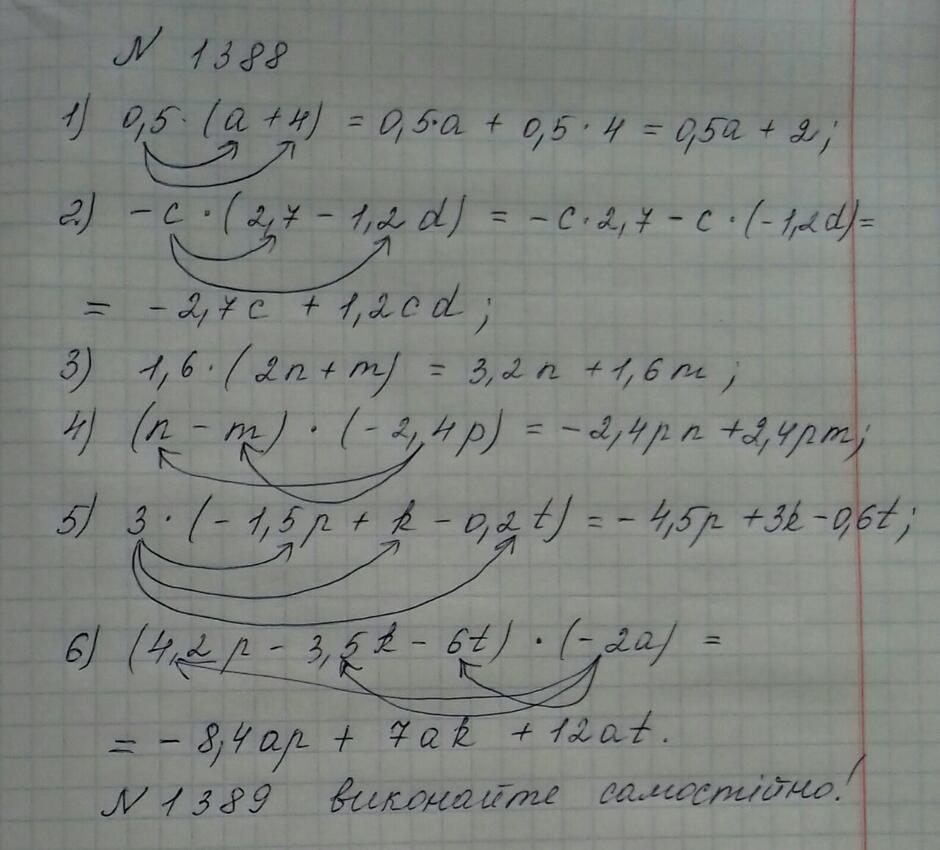 N 1388
1) 0,5 · (a + 4) = 0,5·a + 0,5 · 4 = 0,5a + 2;
2) - c · (2,7 - 1,2 d) = - c · 2,7 - c · (-1,2d) =
= - 2,7c + 1,2cd;
3) 1,6 · (2n + m) = 3,2n + 1,6m;
4) (n - m) · (-2,4p) = - 2,4pn + 2,4pm;
5) 3 · (-1,5p + k - 0,2t) = - 4,5p + 3k - 0,6t;
6) (4,2p - 3,5k - 6t) · (-2a) =
= - 8,4ap + 7ak + 12at.
N 1389 виконайте самостійно!